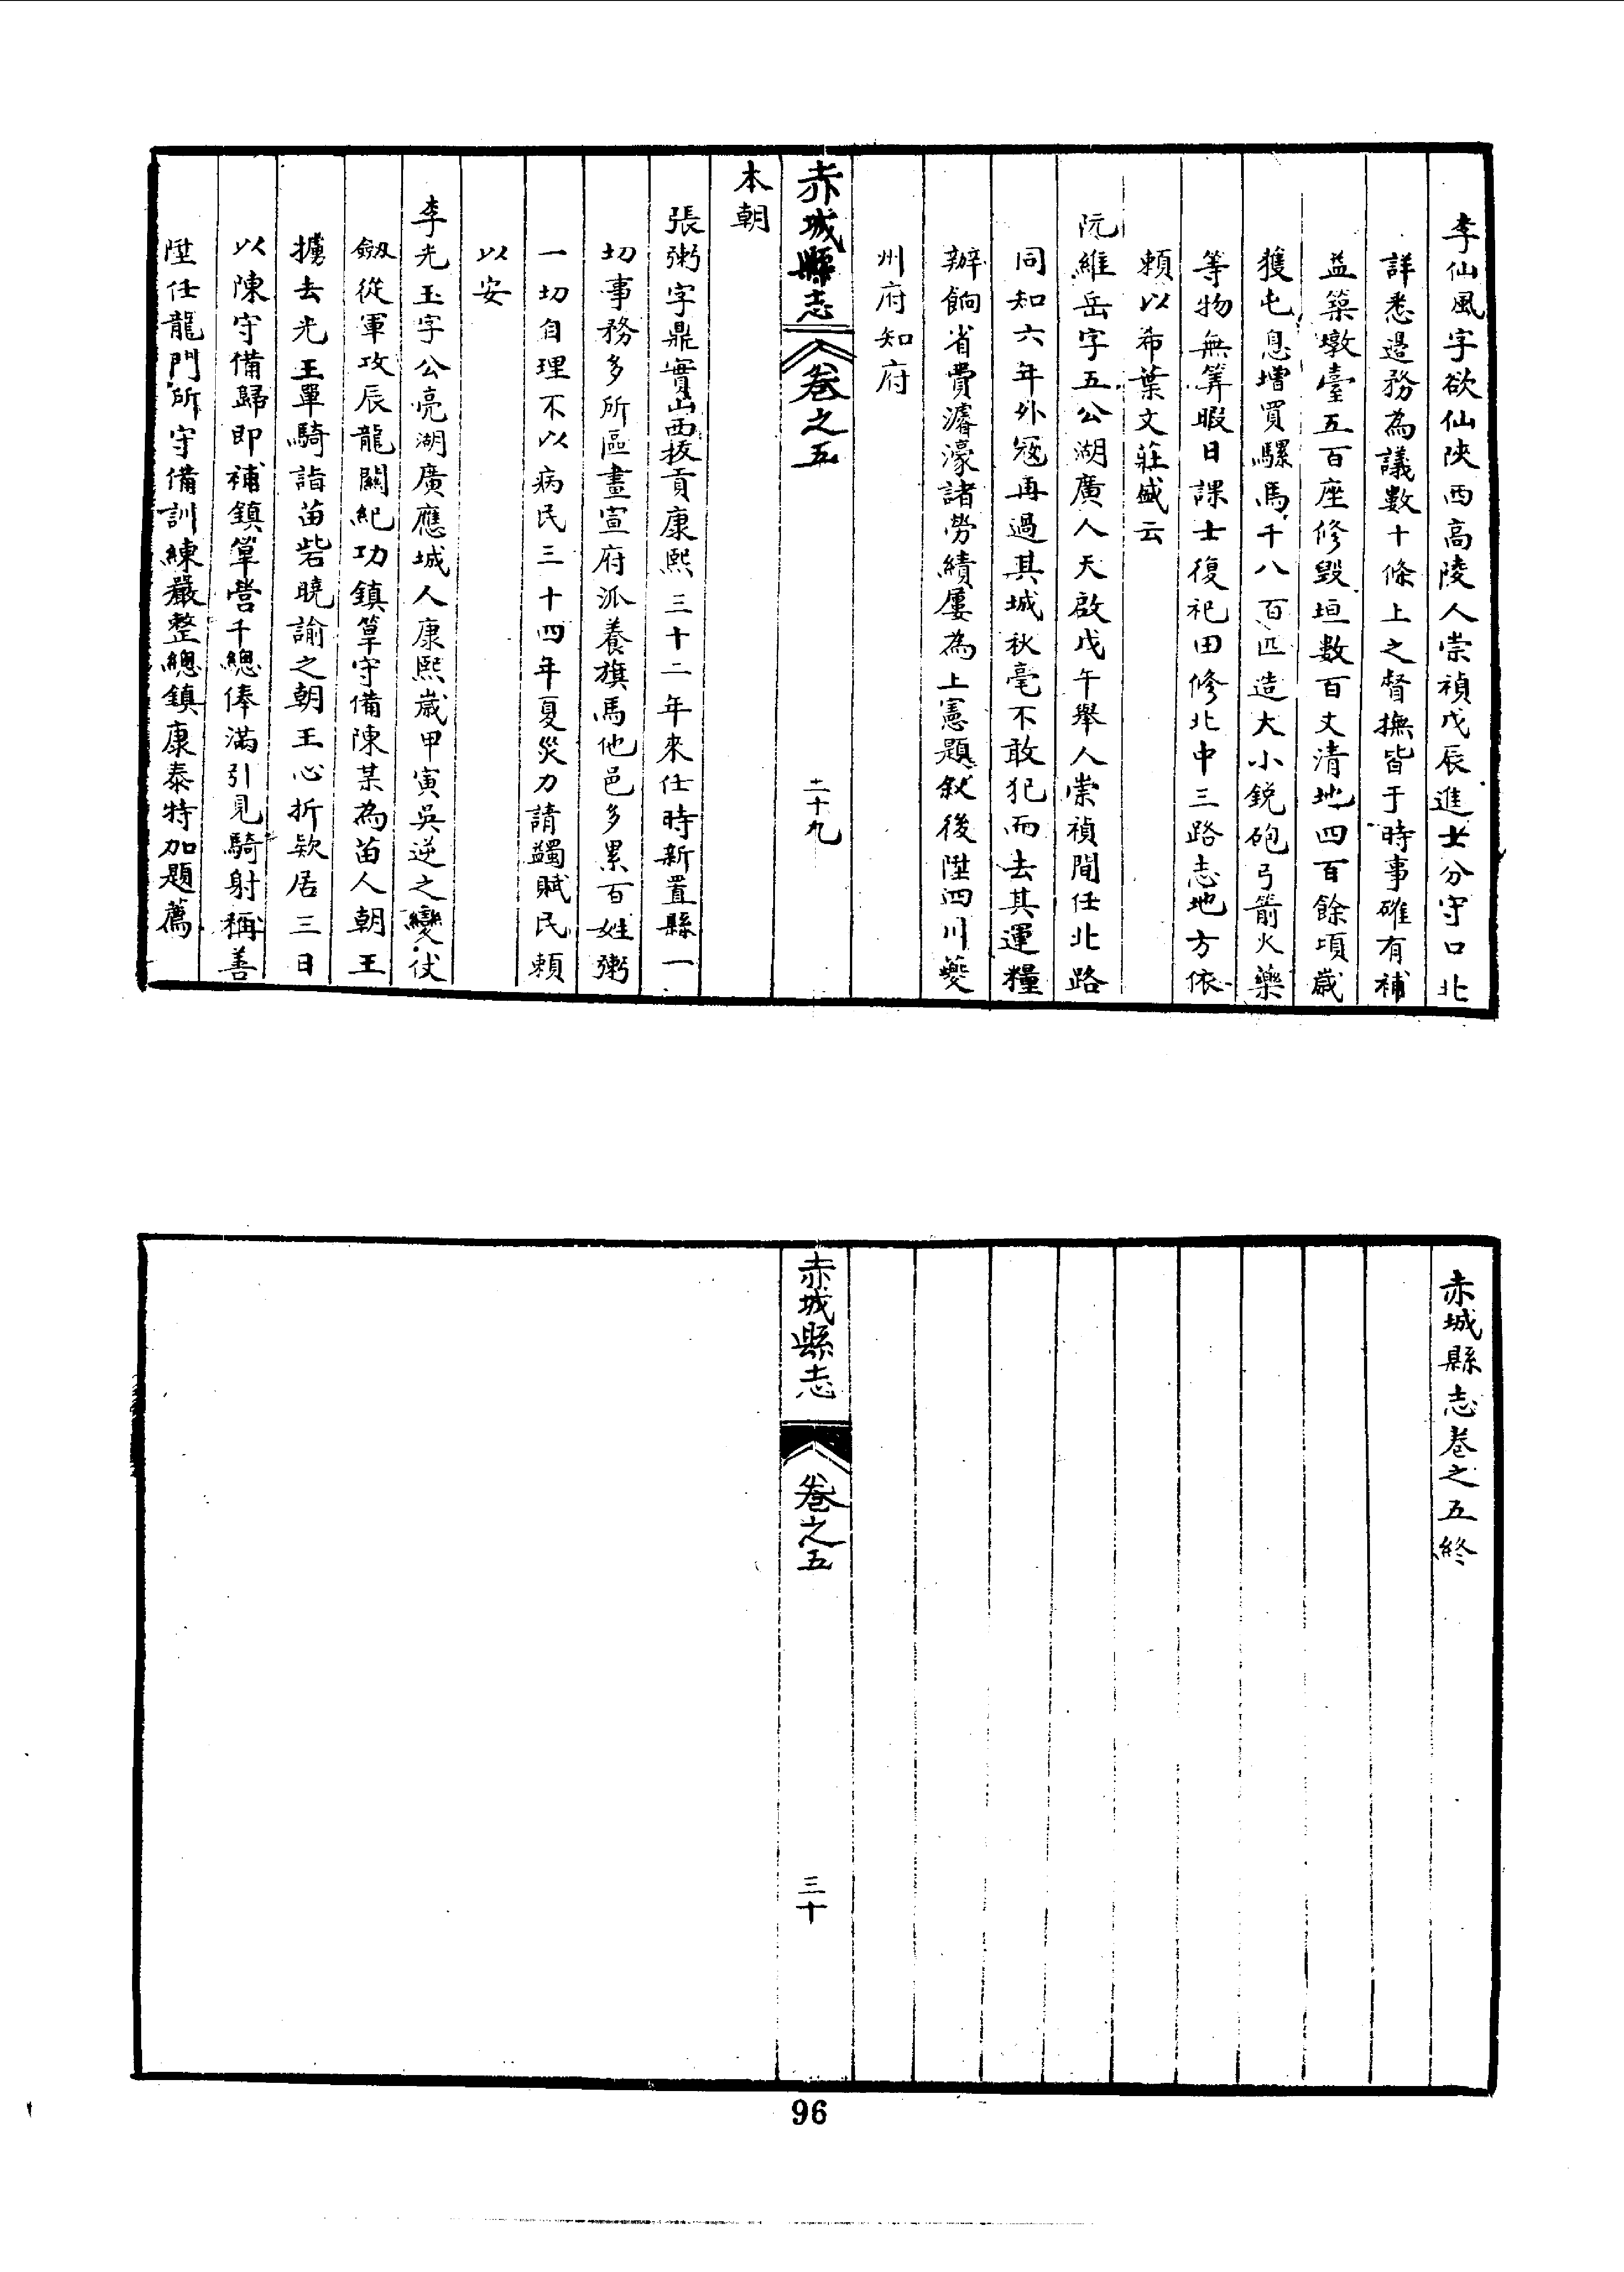 李仙風字欲仙陜西高陵人崇禎戊辰進士分守口北
詳悉邊務為議數十條上之督撫皆于時事確有補
益築墩臺五百座修毀垣數百丈清地四百餘頃歲
獲屯息增買騾馬千八百匹造大小銳砲弓箭火藥
等物無筭暇日課士復祀田修北中三路志地方依
賴以希葉文莊盛云
阮維岳字五公湖廣人天啟戊午舉人崇禎間任北路
同知六年外冦再過其城秋毫不敢犯而去其運糧
辦餉省費濬濠諸勞績屢為上憲題敘後陞四川夔
州府知府
赤城縣志
卷之五
二十九
本朝
張粥字鼎實山西拔貢康熙三十二年來任時新置縣一
切事務多所區畫宣府派養旗馬他邑多累百姓粥
一切自理不以病民三十四年夏災力請蠲賦民賴
以安
李光玉字公亮湖廣應城人康熙歲甲寅吳逆之變仗
劔從軍攻辰龍關紀功鎮筸守備陳某為苗人朝王
擄去光玉單騎詣苗砦曉諭之朝王心折欵居三日
以陳守備歸即補鎮筸營千總俸滿引見騎射稱善
陞任龍門所守備訓練嚴整總鎮康泰特加題薦
赤城縣志卷之五終
赤城縣志
卷之五
三十
96